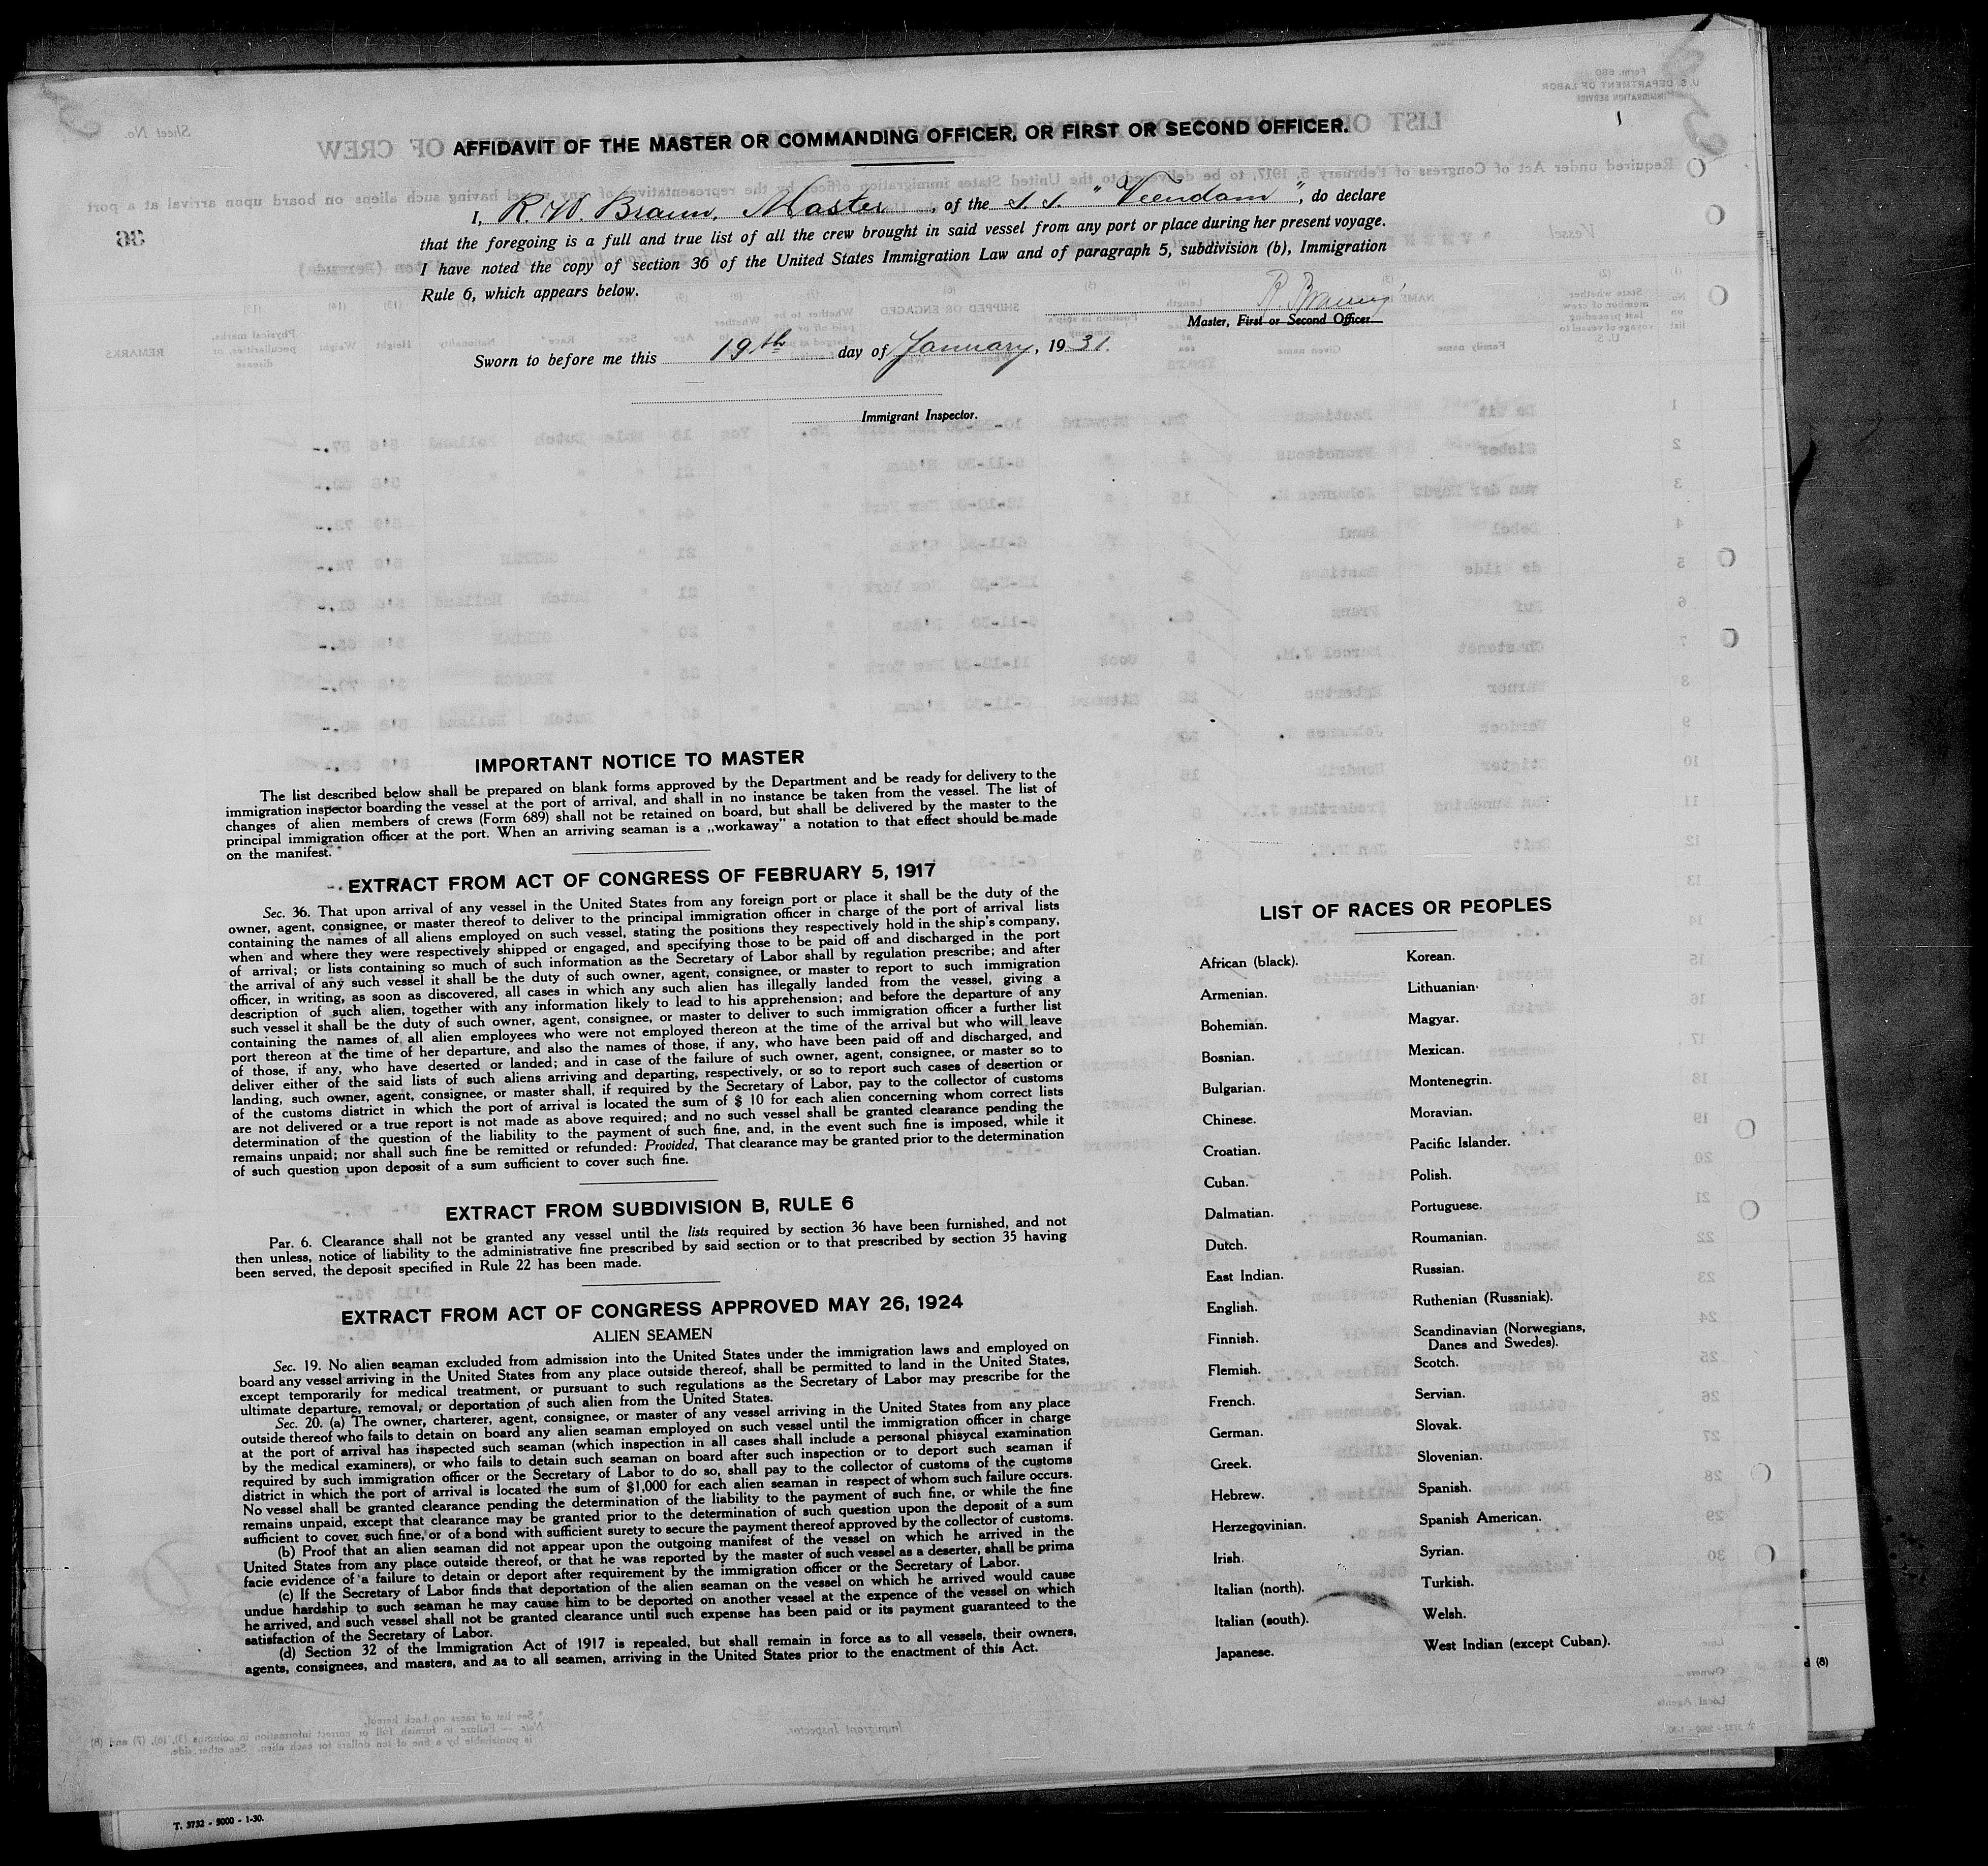 AFFIDAVIT OF THE MASTER OR COMMANDING OFFICER, OR FIRST OR SECOND OFFICER.
I, R. W. Braun, Master, of the S. S. "Veendam", do declare
that the foregoing is a full and true list of all the crew brought in said vessel from any port or place during her present voyage.
I have noted the copy of section 36 of the United States Immigration Law and of paragraph 5, subdivision (b), Immigration
Rule 6, which appears below.
Master, First or Second Officer.
Sworn to before me this 19th day of January, 1931.
Immigrant Inspector.
IMPORTANT NOTICE TO MASTER
The list described below shall be prepared on blank forms approved by the Department and be ready for delivery to the
immigration inspector boarding the vessel at the port of arrival, and shall in no instance be taken from the vessel. The list of
changes of alien members of crews (Form 689) shall not be retained on board, but shall be delivered by the master to the
principal immigration officer at the port. When an arriving seaman is a „workaway” a notation to that effect should be made
on the manifest.
EXTRACT FROM ACT OF CONGRESS OF FEBRUARY 5, 1917
Sec. 36. That upon arrival of any vessel in the United States from any foreign port or place it shall be the duty of the
owner, agent, consignee, or master thereof to deliver to the principal immigration officer in charge of the port of arrival lists
containing the names of all aliens employed on such vessel, stating the positions they respectively hold in the ship's company,
when and where they were respectively shipped or engaged, and specifying those to be paid off and discharged in the port
of arrival; or lists containing so much of such information as the Secretary of Labor shall by regulation prescribe; and after
the arrival of any such vessel it shall be the duty of such owner, agent, consignee, or master to report to such immigration
officer, in writing, as soon as discovered, all cases in which any such alien has illegally landed from the vessel, giving a
description of such alien, together with any information likely to lead to his apprehension; and before the departure of any
such vessel it shall be the duty of such owner, agent, consignee, or master to deliver to such immigration officer a further list
containing the names of all alien employees who were not employed thereon at the time of the arrival but who will leave
port thereon at the time of her departure, and also the names of those, if any, who have been paid off and discharged, and
of those, if any, who have deserted or landed; and in case of the failure of such owner, agent, consignee, or master so to
deliver either of the said lists of such aliens arriving and departing, respectively, or so to report such cases of desertion or
landing, such owner, agent, consignee, or master shall, if required by the Secretary of Labor, pay to the collector of customs
of the customs district in which the port of arrival is located the sum of $ 10 for each alien concerning whom correct lists
are not delivered or a true report is not made as above required; and no such vessel shall be granted clearance pending the
determination of the question of the liability to the payment of such fine, and, in the event such fine is imposed, while it
remains unpaid; nor shall such fine be remitted or refunded: Provided, That clearance may be granted prior to the determination
of such question upon deposit of a sum sufficient to cover such fine.
EXTRACT FROM SUBDIVISION B, RULE 6
Par. 6. Clearance shall not be granted any vessel until the lists required by section 36 have been furnished, and not
then unless, notice of liability to the administrative fine prescribed by said section or to that prescribed by section 35 having
been served, the deposit specified in Rule 22 has been made.
EXTRACT FROM ACT OF CONGRESS APPROVED MAY 26, 1924
ALIEN SEAMEN
Sec. 19. No alien seaman excluded from admission into the United States under the immigration laws and employed on
board any vessel arriving in the United States from any place outside thereof, shall be permitted to land in the United States,
except temporarily for medical treatment, or pursuant to such regulations as the Secretary of Labor may prescribe for the
ultimate departure, removal, or deportation of such alien from the United States.
Sec. 20. (a) The owner, charterer, agent, consignee, or master of any vessel arriving in the United States from any place
outside thereof who fails to detain on board any alien seaman employed on such vessel until the immigration officer in charge
at the port of arrival has inspected such seaman (which inspection in all cases shall include a personal phisycal examination
by the medical examiners), or who fails to detain such seaman on board after such inspection or to deport such seaman if
required by such immigration officer or the Secretary of Labor to do so, shall pay to the collector of customs of the customs
district in which the port of arrival is located the sum of $1,000 for each alien seaman in respect of whom such failure occurs.
No vessel shall be granted clearance pending the determination of the liability to the payment of such fine, or while the fine
remains unpaid, except that clearance may be granted prior to the determination of such question upon the deposit of a sum
sufficient to cover such fine, or of a bond with sufficient surety to secure the payment thereof approved by the collector of customs.
(b) Proof that an alien seaman did not appear upon the outgoing manifest of the vessel on which he arrived in the
United States from any place outside thereof, or that he was reported by the master of such vessel as a deserter, shall be prima
facie evidence of a failure to detain or deport after requirement by the immigration officer or the Secretary of Labor.
(c) If the Secretary of Labor finds that deportation of the alien seaman on the vessel on which he arrived would cause
undue hardship to such seaman he may cause him to be deported on another vessel at the expence of the vessel on which
he arrived, and such vessel shall not be granted clearance until such expense has been paid or its payment guaranteed to the
satisfaction of the Secretary of Labor.
(d) Section 32 of the Immigration Act of 1917 is repealed, but shall remain in force as to all vessels, their owners,
agents, consignees, and masters, and as to all seamen, arriving in the United States prior to the enactment of this Act.
LIST OF RACES OR PEOPLES
African (black).
Armenian.
Bohemian.
Bosnian.
Bulgarian.
Chinese.
Croatian.
Cuban.
Dalmatian.
Dutch.
East Indian.
English.
Finnish.
Flemish.
French.
German.
Greek.
Hebrew.
Herzegovinian.
Irish.
Italian (north).
Italian (south).
Japanese.
Korean.
Lithuanian.
Magyar.
Mexican.
Montenegrin.
Moravian.
Pacific Islander.
Polish.
Portuguese.
Roumanian.
Russian.
Ruthenian (Russniak).
Scandinavian (Norwegians,
Danes and Swedes).
Scotch.
Servian.
Slovak.
Slovenian.
Spanish.
Spanish American.
Syrian.
Turkish.
Welsh.
West Indian (except Cuban).
d (8)
T. 3732 - 5000 - 1-30.